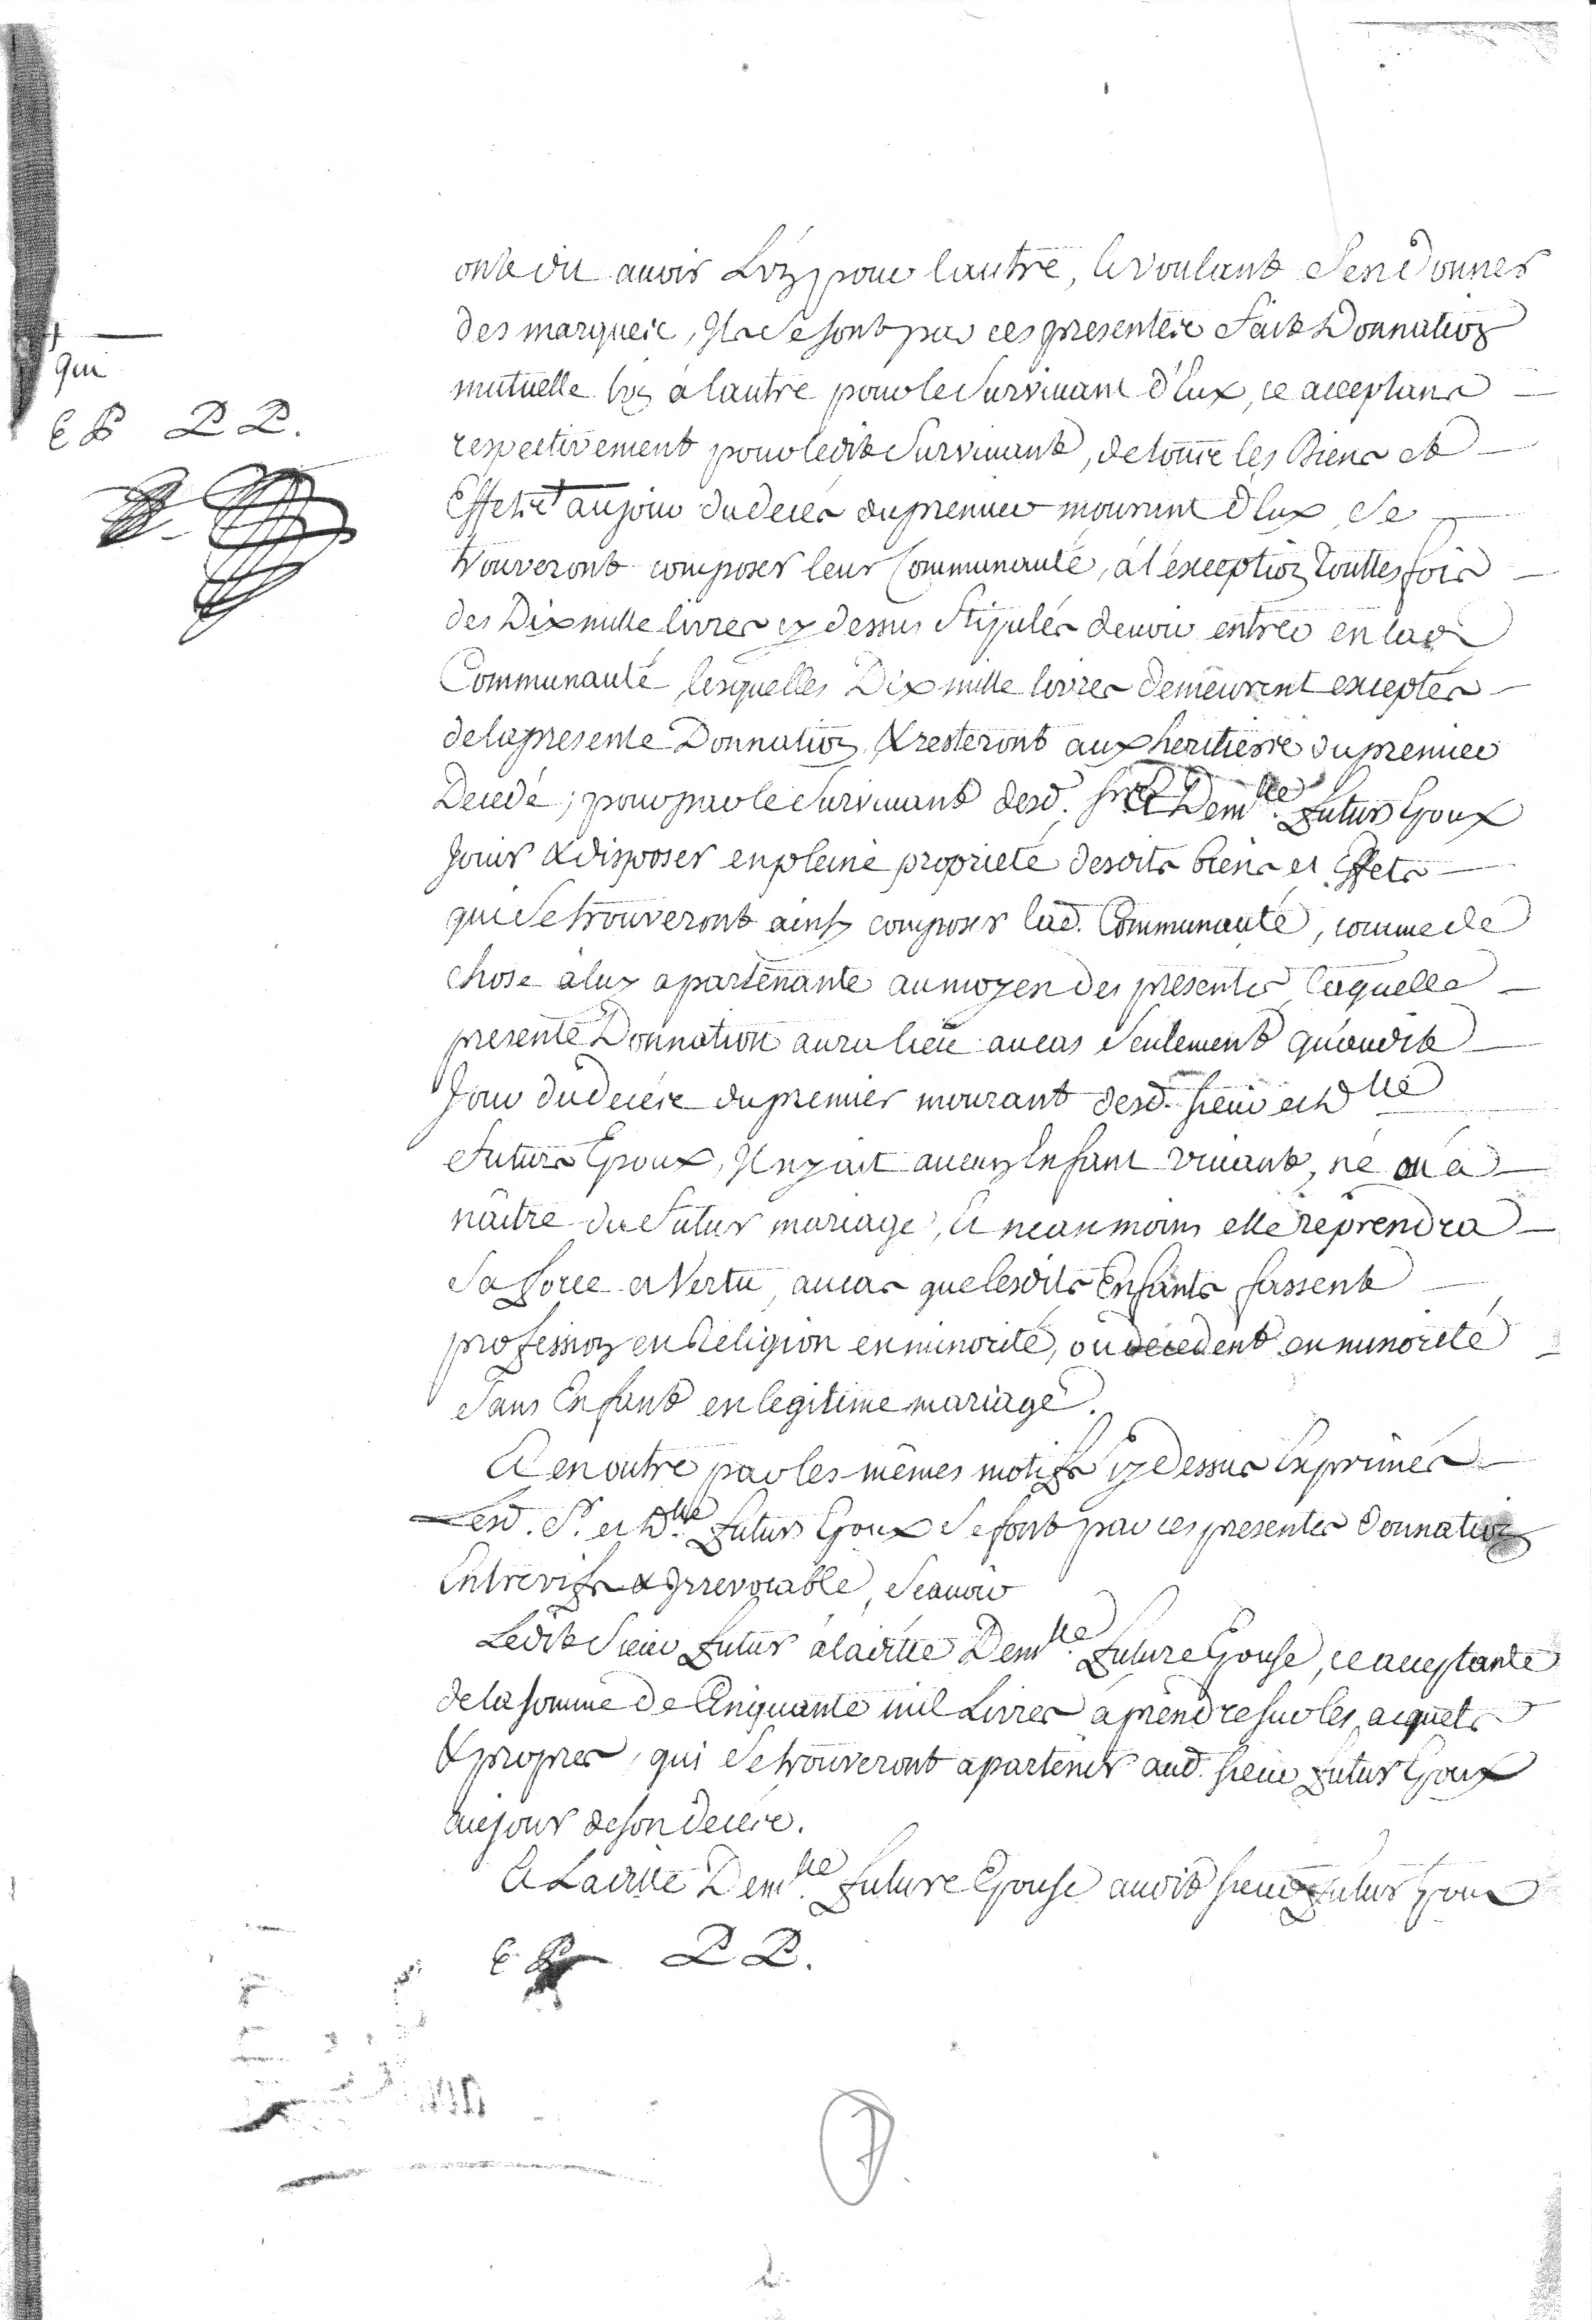 +
qui
E B P P.
ont dit avoir L'un pour lautre, et voulant Sen donner
des marques, Ils Se sont par ces presentes fait Donnation
mutuelle l'un à lautre pour le Survivant d'Eux, ce acceptans
respectivement pour ledit Survivant, de tous les Biens et
Effets + au jour du decés du premier mourant d'Eux, Se
trouveront composer leur Communauté, à l'éxception touttes fois
des Dix mille livres cy dessus Stipulés devoir entrer en lad.
Communauté, lesquelles Dix mille livres demeurent exceptés
de la presente Donnation, & resteront aux heritiers du premier
Decedé; pour par le Survivant desd. Sr. et Demlle. futurs Epoux
Jouir & disposer en pleine proprieté desdits biens et Effets
qui Se trouveront ainsy composer lad. Communauté, comme de
chose à luy apartenante au moyen des presentes, laquelle
presente Donnation aura lieu au cas Seulement qu'audit
Jour du decés du premier mourant desd. Sieur et Dlle
futurs Epoux, Il n'y ait aucun Enfant vivant, né ou à
naître du futur mariage, Et neanmoins elle reprendra
Sa force et Vertu, au cas que lesdits Enfants fassent
profession en Religion en minorité, ou decedent en minorité
Sans Enfant en legitime mariage.
Et en outre par les mêmes motifs cy dessus Exprimés
Lesd. Sr. et Dlle. futurs Epoux Se font par ces presentes Donnation
Entrevifs & Irrevocable, Scavoir
Ledit Sieur futur à laditte Demlle. future Epouse, ce acceptante
de la somme de Cinquante mil Livres à prendre sur les acquets
& propres, qui Se trouveront apartenir aud. Sieur futur Epoux
au jour de son decés.
Et Laditte Demlle. future Epouse audit Sieur futur Epoux
E B P P.
7